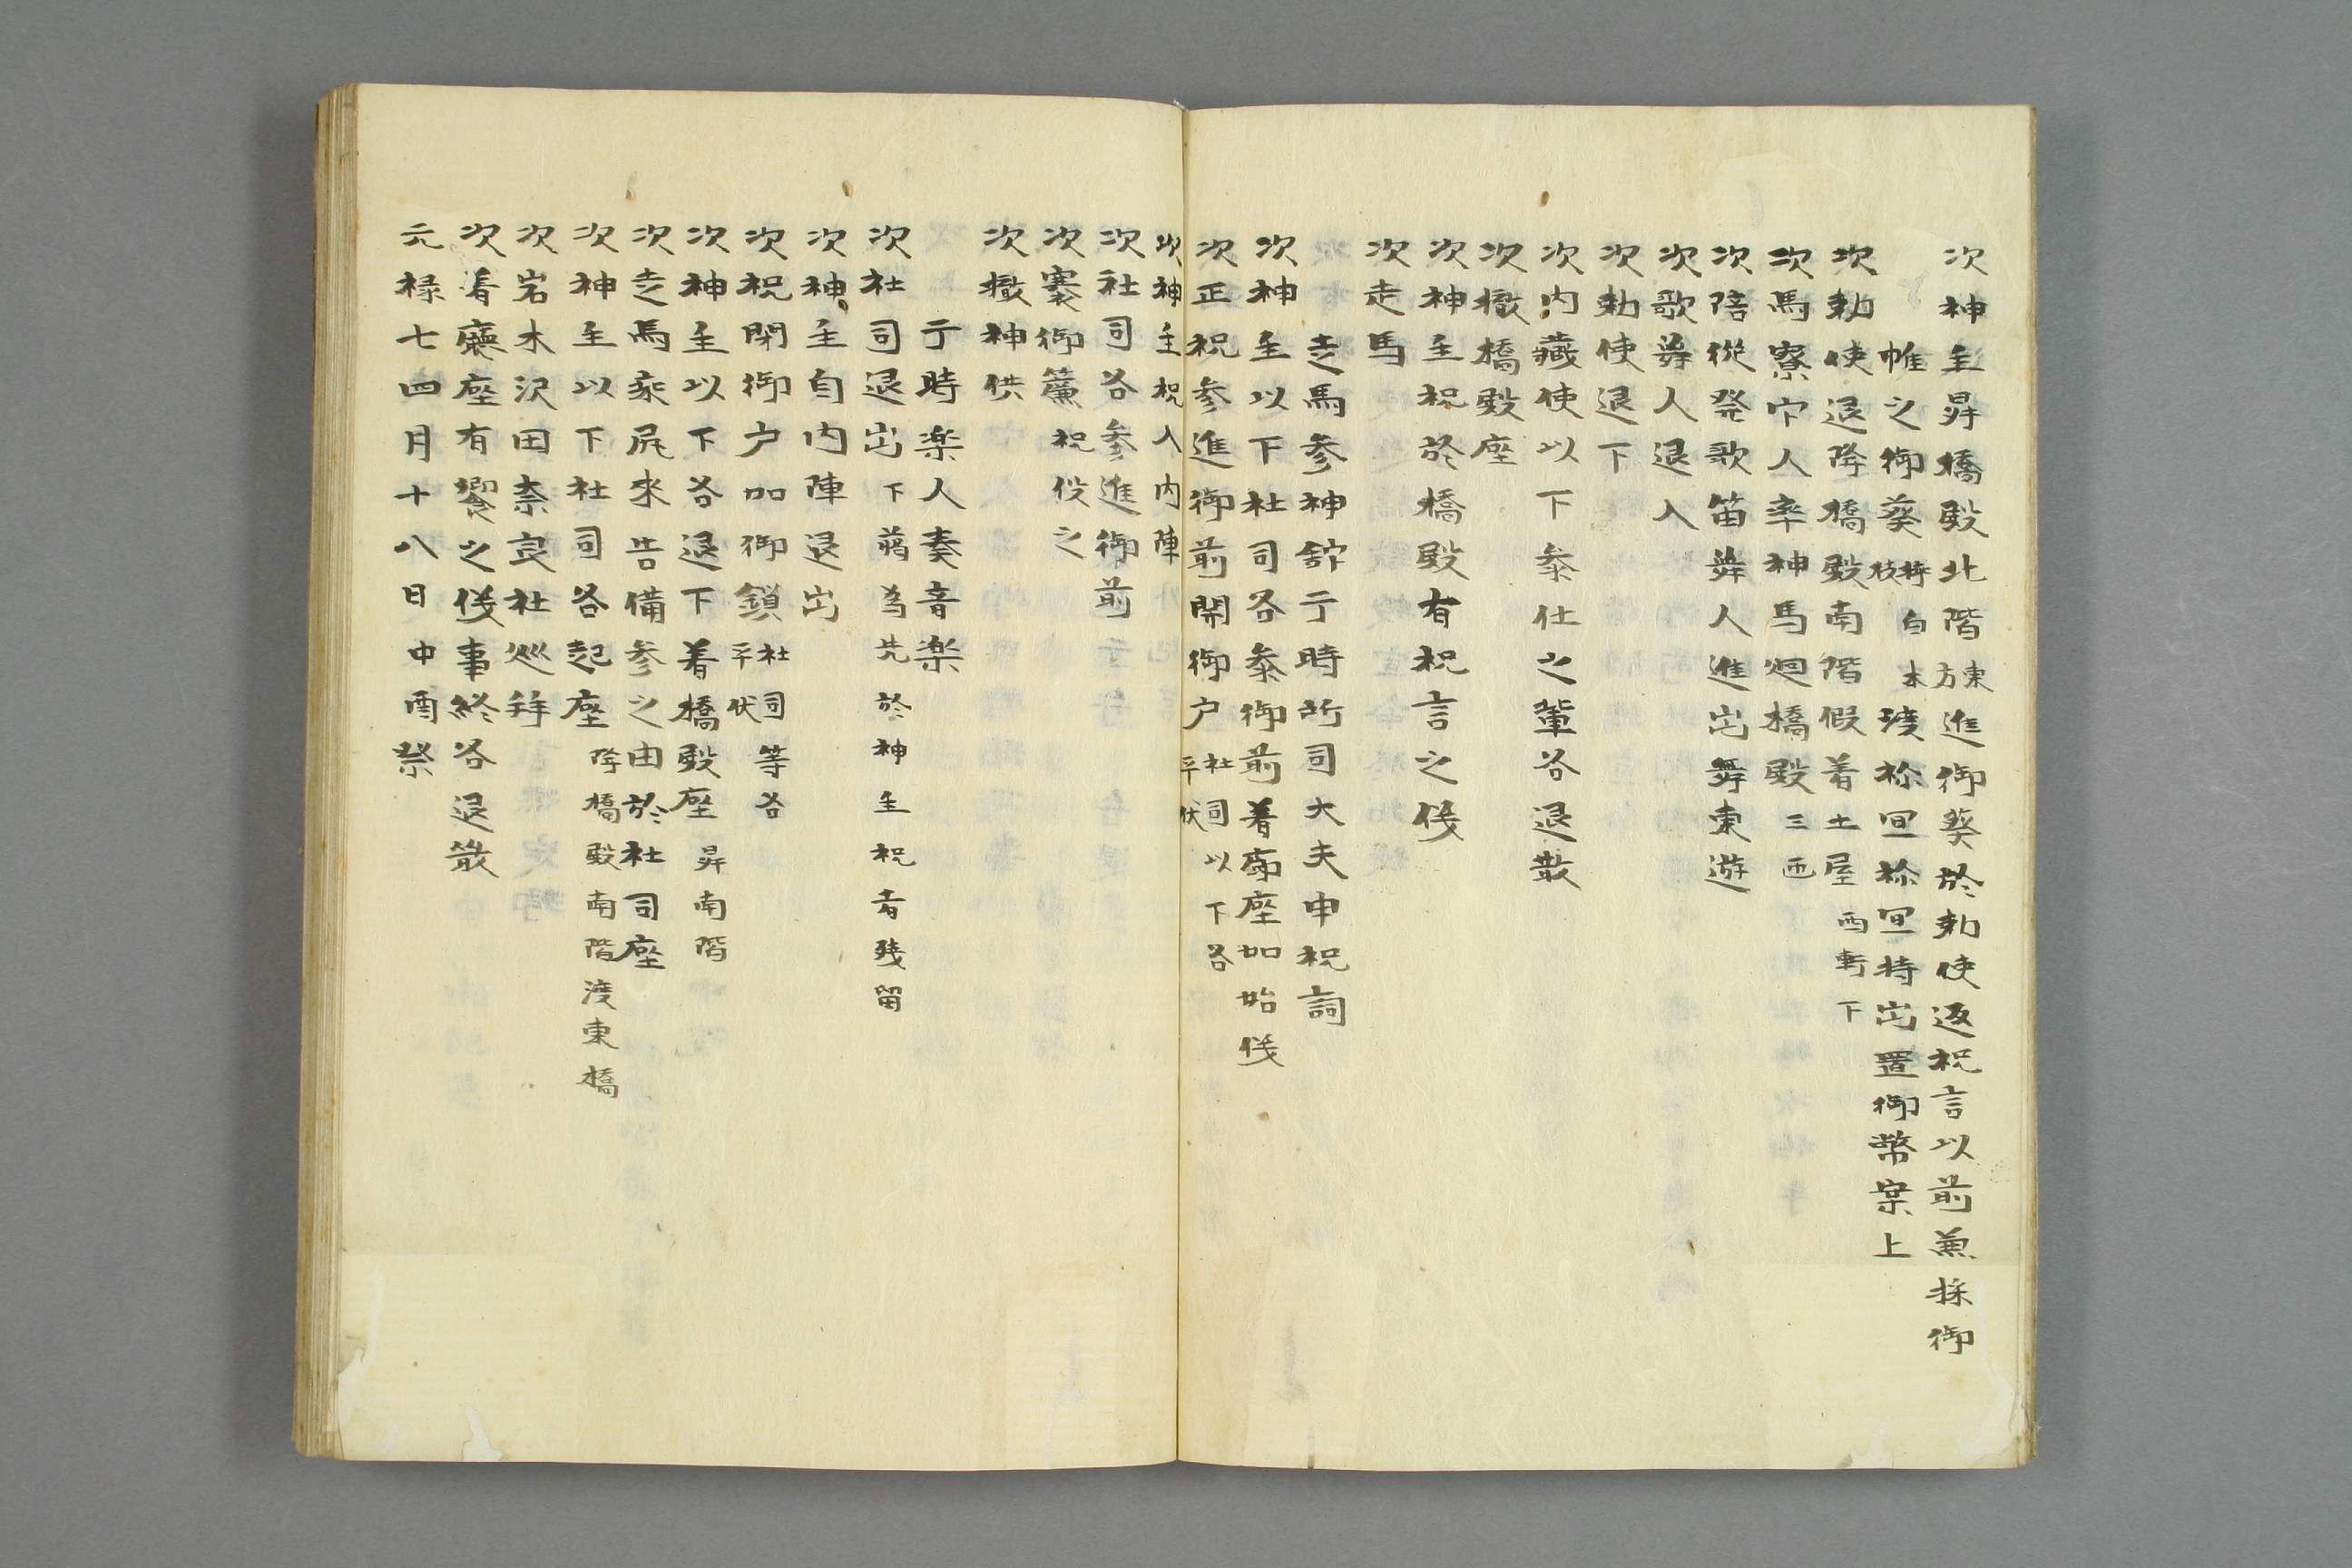 次神主昇橋殿北階東方進御葵於勅使返祝言以前兼採御
帷之御葵枝持白木渡祢冝祢冝持出置御幣案上
次勅使退降橋殿南階假着土屋西軒下
次馬寮官人率神馬廻橋殿三匝
次陪従発歌笛舞人進出舞東遊
次歌舞人退入
次勅使退下
次内蔵使以下参仕之輩各退散
次撤橋殿座
次神主祝於橋殿有祝言之儀
次走馬
走馬参神舘于時所司大夫申祝詞
次神主以下社司各参御前着廊座如始儀
次正祝参進御前開御户社司以下各平伏
次神主祝入内陣
次社司各参進御前
次褰御簾祝役之
次撤神供
于時楽人奏音楽
次社司退出下﨟為先於神主祝者残留
次神主自内陣退出
次祝閉御户加御鎖社司等各平伏
次神主以下各退下着橋殿座昇南階
次走馬乘尻来告備参之由於社司座
次神主以下社司各起座降橋殿南階渡東橋
次岩木沢田奈良社巡拝
次着廳座有饗之儀事終各退散
元禄七四月十八日中酉祭